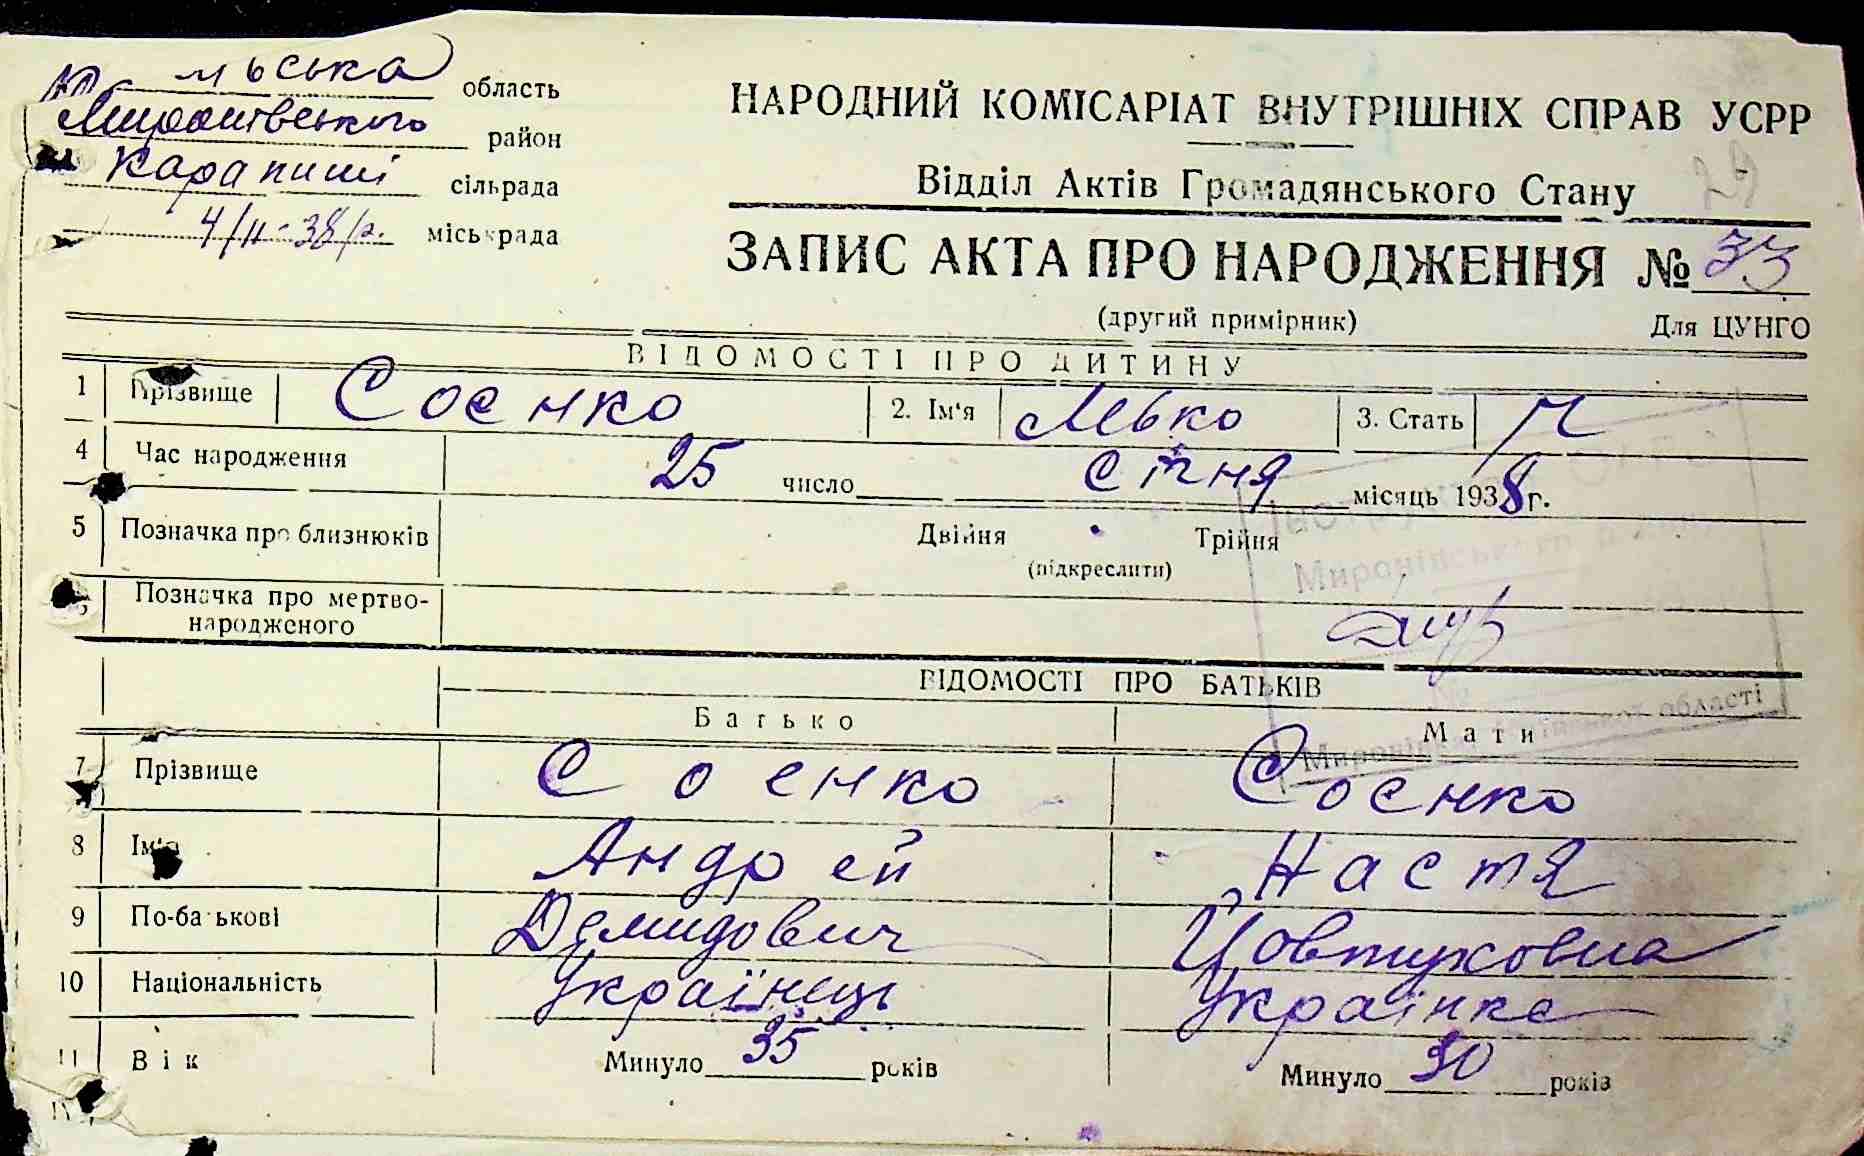 область
Миронівського район
Карапиші сільрада
4/II-38р. міськрада
НАРОДНИЙ КОМІСАРІАТ ВНУТРІШНІХ СПРАВ УСРР
Відділ Актів Громадянського Стану
29
ЗАПИС АКТА ПРО НАРОДЖЕННЯ № 33
(другий примірник)
Для ЦУНГО
ВІДОМОСТІ ПРО ДИТИНУ
1 Прізвище Соєнко 2. Ім'я Лєько 3. Стать Ч
4 Час народження 25 число січня місяць 1938 г.
5 Позначка про близнюків Двійня Трійня
(підкреслити)
6 Позначка про мертво-
народженого
ВІДОМОСТІ ПРО БАТЬКІВ
Батько Мати
7 Прізвище Соенко Соєнко
8 Ім'я Андрей Настя
9 По-батькові Демидович Йовтуховна
10 Національність Українець Українка
11 Вік Минуло 35 років Минуло 30 років